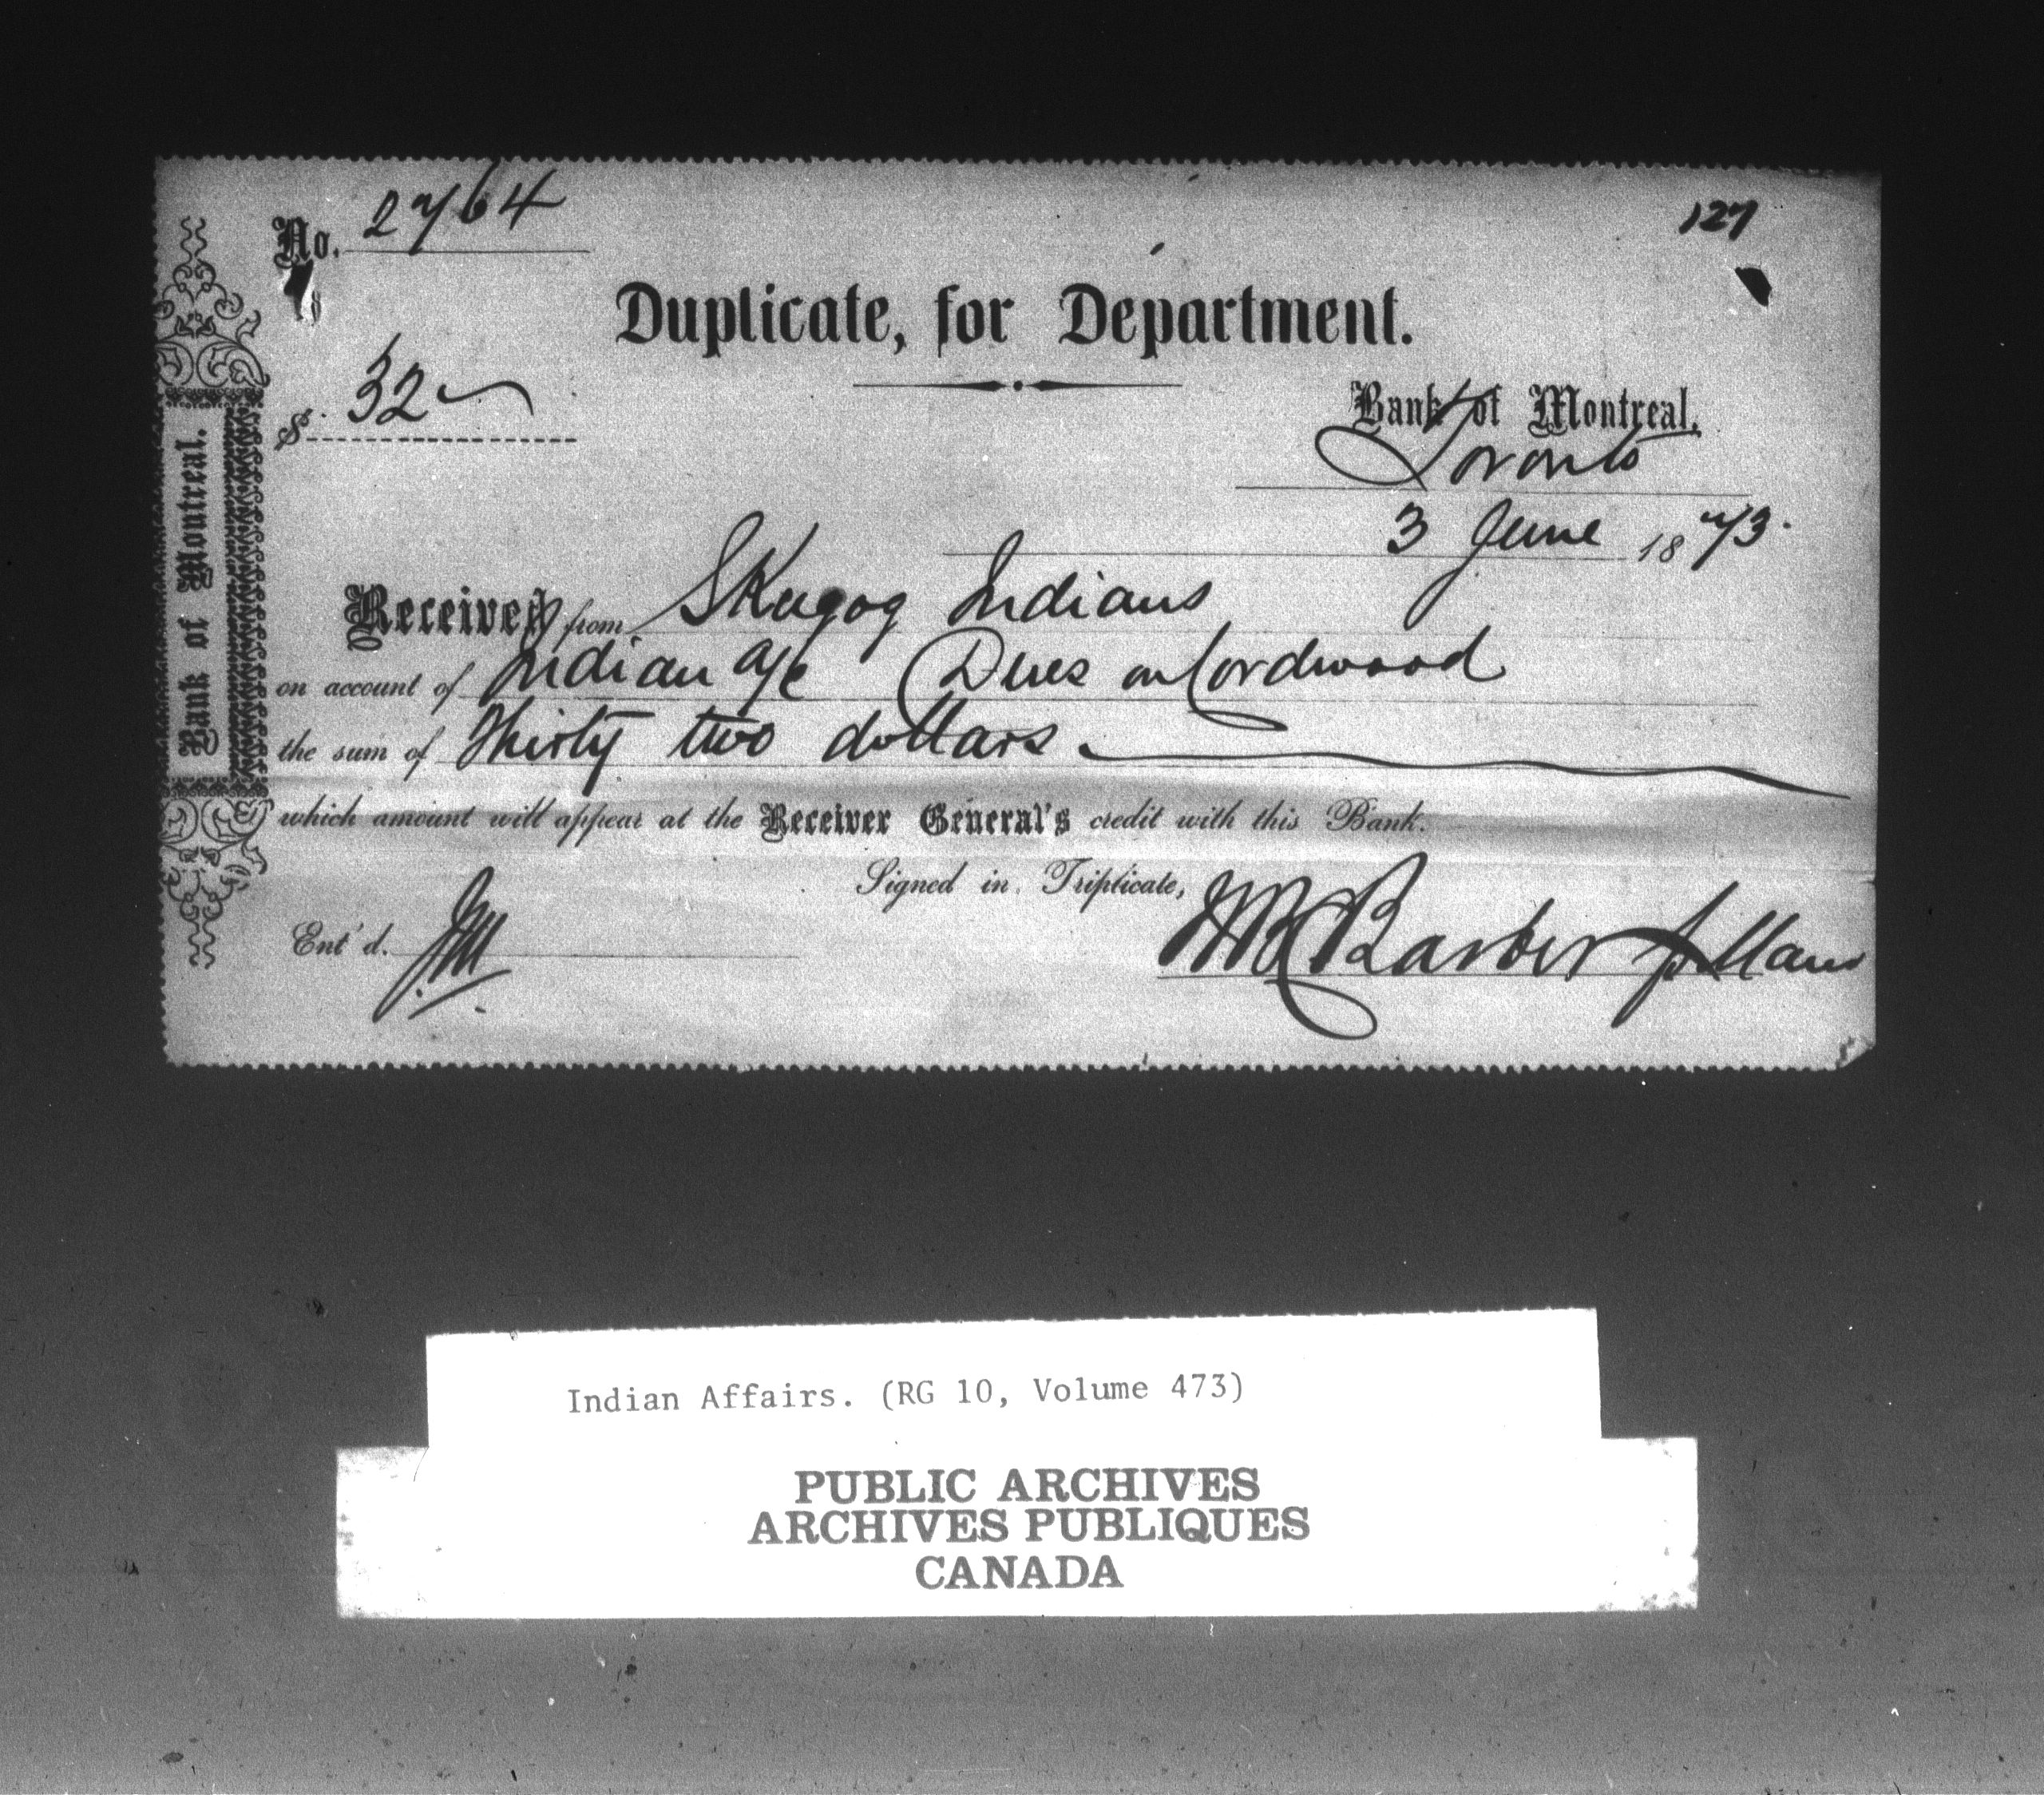 No. 2764
127
Duplicate, for Department.
$ 32
Bank of Montreal.
Toronto
3 June 1873.
Bank of Montreal.
Received from Skugog Indians
on account of Indian a/c Dues on Cordwood
the sum of Thirty two dollars
which amount will appear at the Receiver General's credit with this Bank.
Signed in Triplicate,
Ent'd. J.M.
Barber
Indian Affairs. (RG 10, Volume 473)
PUBLIC ARCHIVES
ARCHIVES PUBLIQUES
CANADA